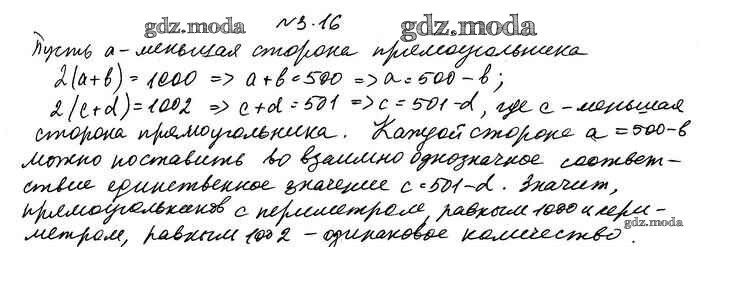 gdz.moda №3.16 gdz.moda
Пусть а - меньшая сторона прямоугольника
2(a+b) = 1000 => a+b = 500 => a = 500-b;
2(c+d) = 1002 => c+d = 501 => c = 501-d, где с - меньшая
сторона прямоугольника. Каждой стороне a = 500-b
можно поставить во взаимно однозначное соответ-
ствие единственное значение c = 501-d. Значит,
прямоугольников с периметром, равным 1000 и пери-
метром, равным 1002 - одинаковое количество.
gdz.moda